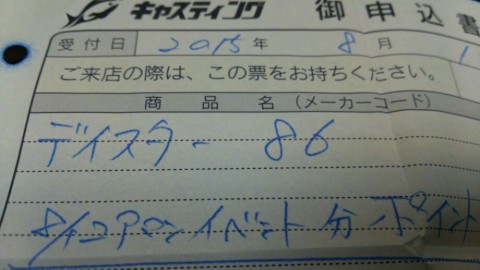 キャスティング 御申込書
受付日 2015年 8月 1
ご来店の際は、この票をお持ちください。
商品名（メーカーコード）
デイスター 86
8/1コアマンイベント分ポイント